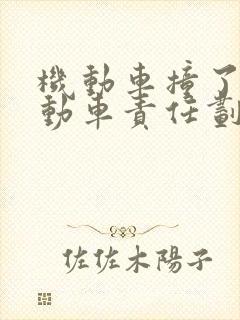 機動車撞了
動車責任劃
佐佐木陽子